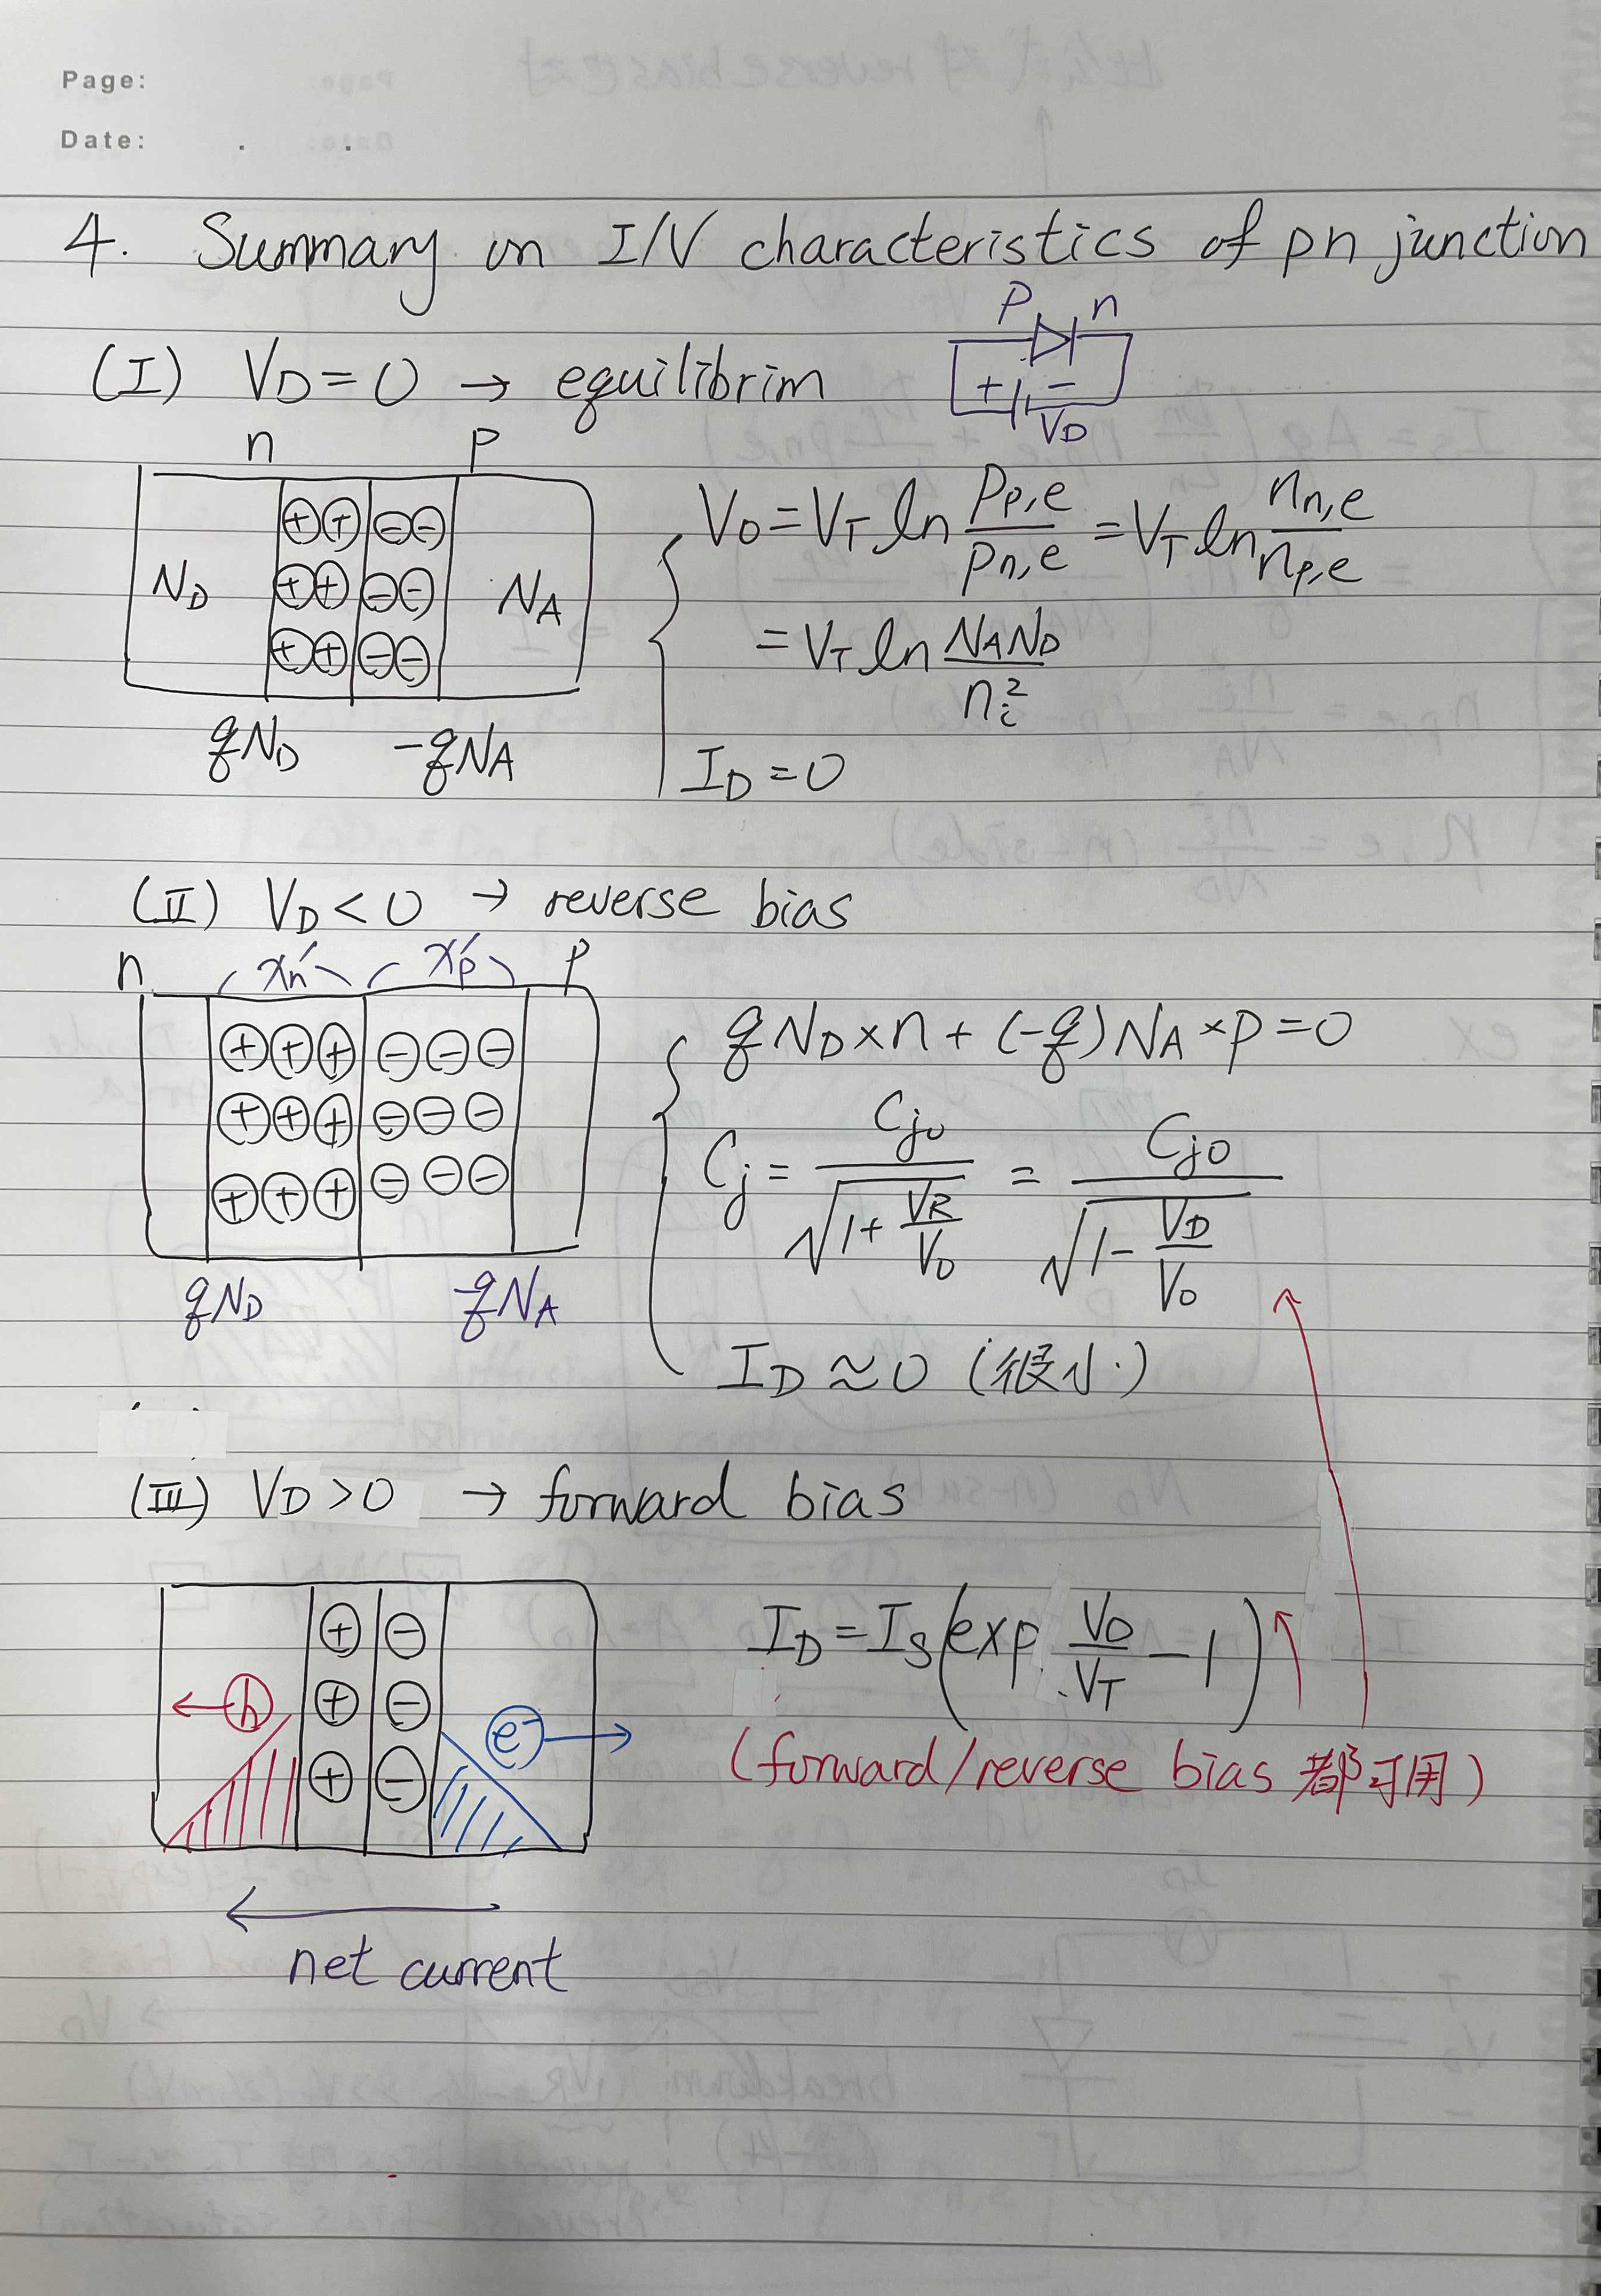 Page:
Date: . .
4. Summary on I/V characteristics of pn junction
(I) VD = 0 → equilibrim
P n
+ −
VD
n p
ND NA
++ −−
++ −−
++ −−
qND -qNA
V0 = VT ln pp,e/pn,e = VT ln nn,e/np,e
= VT ln NAND/ni²
ID = 0
(II) VD < 0 → reverse bias
n xn' xp' p
+++ −−−
+++ −−−
+++ −−−
qND -qNA
qNDxn + (-q)NAxp = 0
Cj = Cj0/√(1+VR/V0) = Cj0/√(1-VD/V0)
ID ≈ 0 (很小)
(III) VD > 0 → forward bias
+ −
h + −
+ − e-
net current
ID = IS(exp VD/VT - 1)
(forward/reverse bias 都可用)